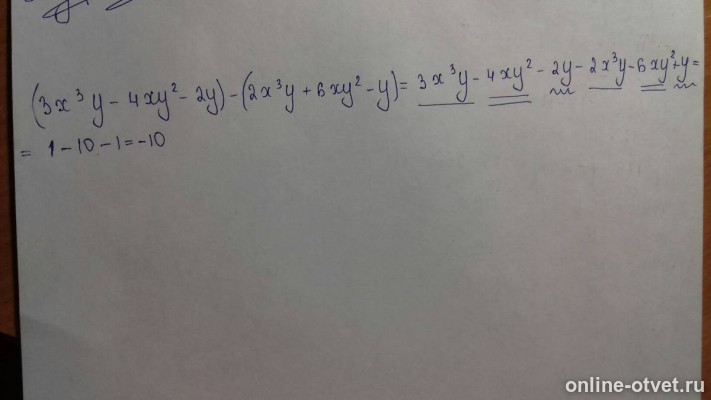 (3x³y - 4xy² - 2y) - (2x³y + 6xy² - y) = 3x³y - 4xy² - 2y - 2x³y - 6xy² + y =
= 1 - 10 - 1 = -10
online-otvet.ru